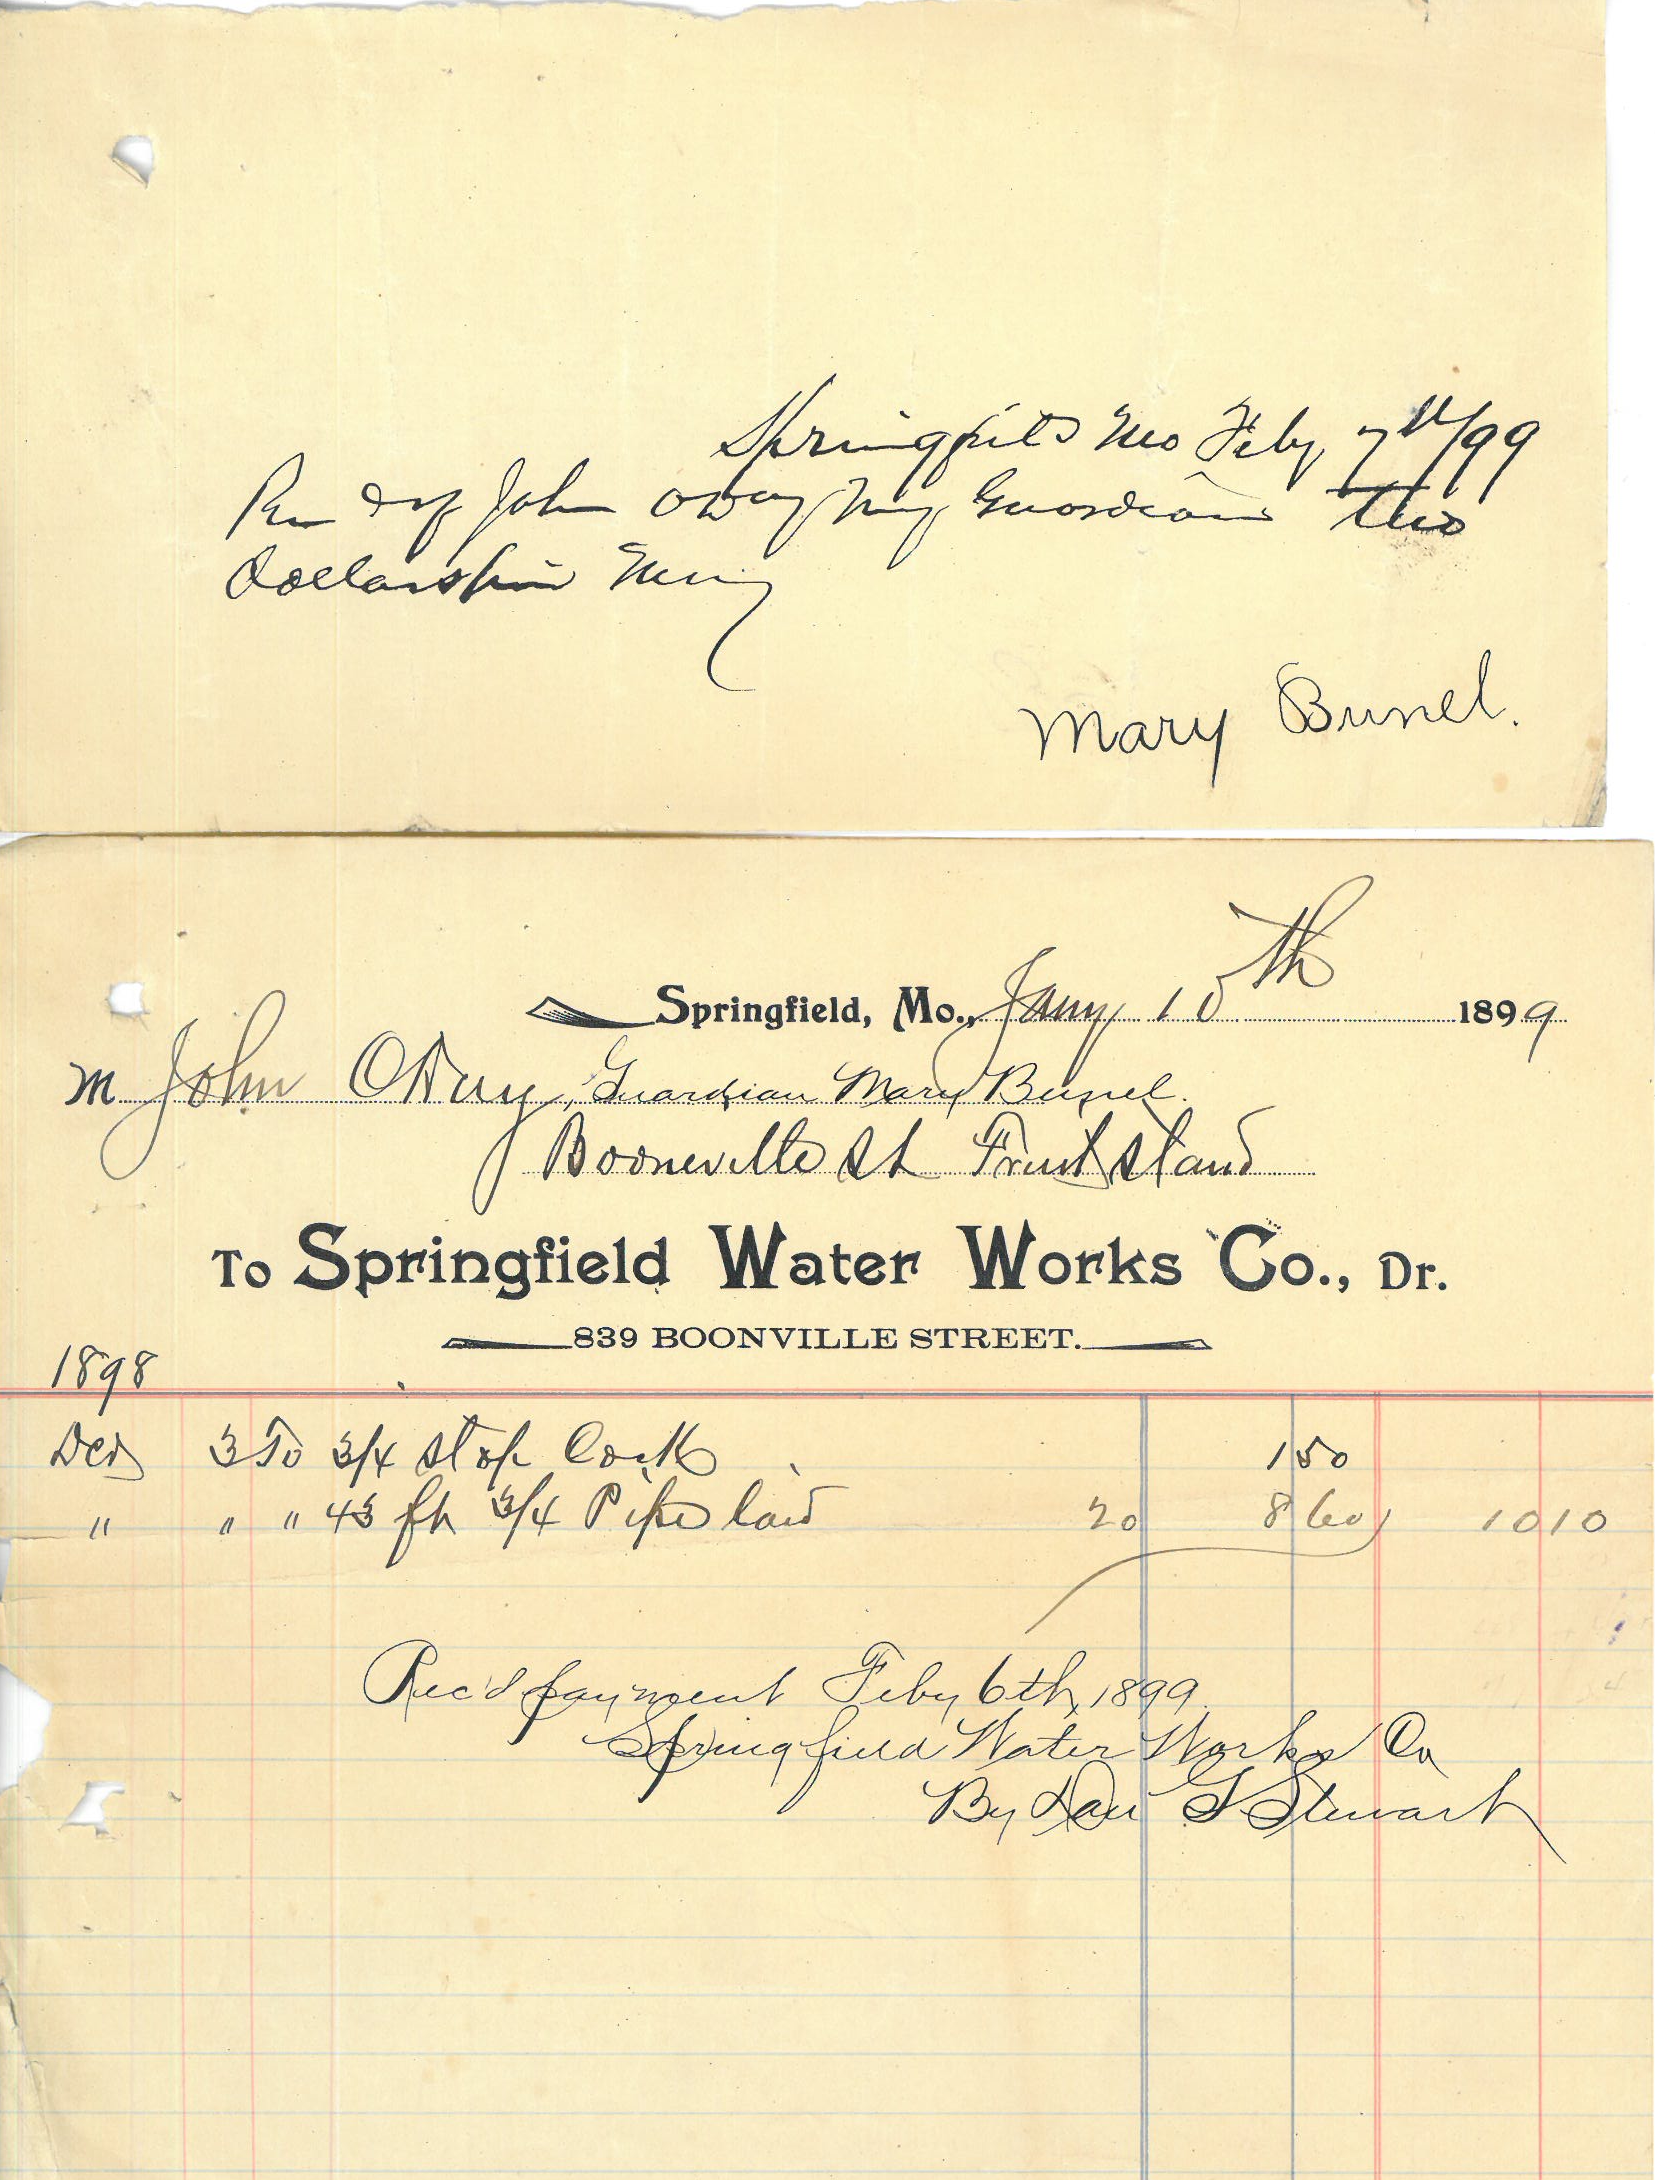 Springfield Mo Feby 7th/99
Rec of John ODay My Guardian two
dollars in Money
Mary Bunel.
Springfield, Mo., Jany 10th 1899
M John ODay, Guardian Mary Bunel.
Booneville St Fruit Stand
To Springfield Water Works Co., Dr.
839 BOONVILLE STREET.
1898
Dec 3 To 3/4 Stop Cock 150
" " " 43 ft 3/4 Pipe laid 20 860 1010
Rec'd payment Feby 6th, 1899.
Springfield Water Works Co
By Dan G Stewart